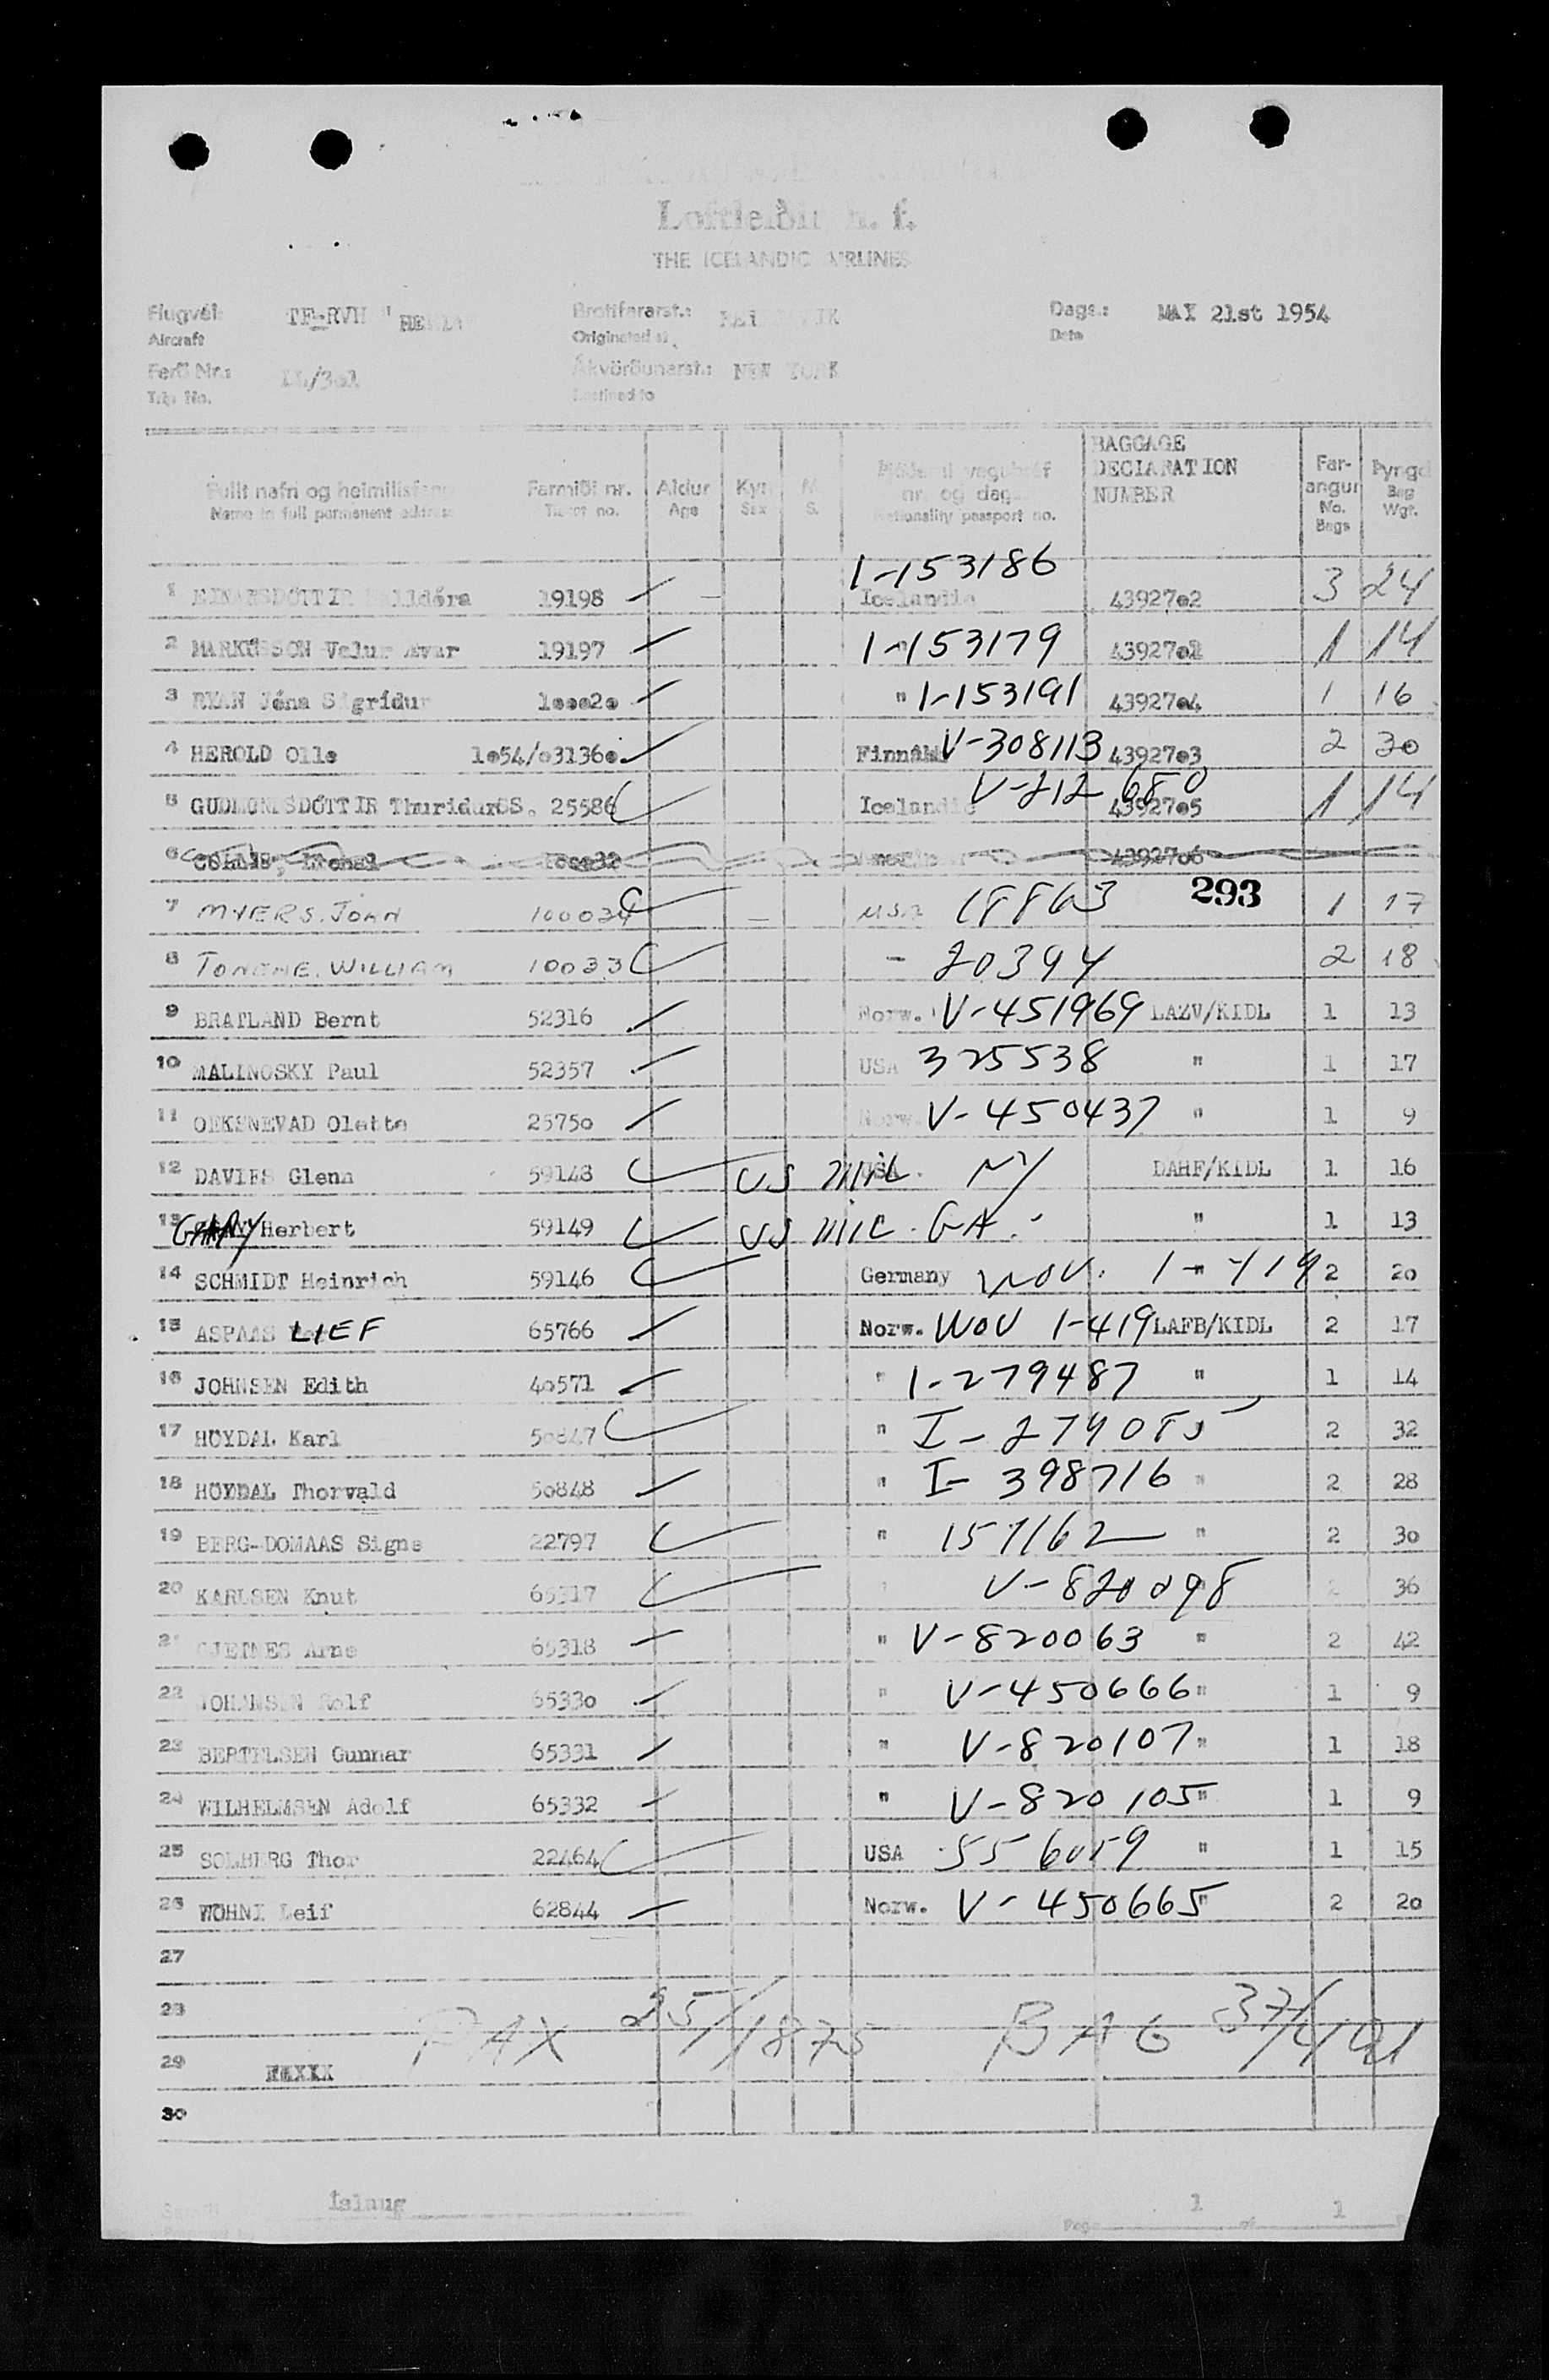 Loftleiðir h. f.
THE ICELANDIC AIRLINES
Flugvél: TF-RVH " Brottfararst.: Dags.: MAY 21st 1954
Aircraft Originated at Date
Ferð Nr.: Ákvörðunarst.: NEW YORK
Trip No. Destined to
Fullt nafn og heimilisfang Farmiði nr. Aldur Kyn M nr. og dags. BAGGAGE DECLARATION NUMBER Far-angur Þyngd
Name in full permanent address Ticket no. Age Sex S. Nationality passport no. No. Bags Bag Wgt.
1 EINARSDÓTTIR Halldóra 19198 1-153186 Icelandic 43927o2 3 24
2 MARKÚSSON Valur Ævar 19197 1-153179 43927o1 1 14
3 RYAN Jóna Sigrídur 1ooo2o " 1-153191 43927o4 1 16
4 HEROLD Olle 1o54/o3136o V-308113 43927o3 2 30
5 GUDMONDSDÓTTIR ThuridurSS. 25586 Icelandic V-212680 43927o5 1 14
6 43927o6
293
7 MYERS, JOHN 100034 USA 18863 1 17
8 WILLIAM 10033 - 20394 2 18
9 BRATLAND Bernt 52316 Norw. V-451969 LAZV/KIDL 1 13
10 MALINOSKY Paul 52357 USA 325538 " 1 17
11 OEKSNEVAD Olette 25750 Norw. V-450437 " 1 9
12 DAVIES Glenn 59148 US MIL NY DAHF/KIDL 1 16
13 GARY Herbert 59149 US MIL. GA. " 1 13
14 SCHMIDT Heinrich 59146 Germany WOV. 1-419 2 20
15 ASPAAS LIEF 65766 Norw. WOV 1-419 LAFB/KIDL 2 17
16 JOHNSEN Edith 4o571 " 1-279487 " 1 14
17 HÖYDAL Karl 5o847 " I-279085 " 2 32
18 HÖYDAL Thorvald 5o848 " I-398716 " 2 28
19 BERG-DOMAAS Signe 22797 " 157162 " 2 30
20 KARLSEN Knut 65317 " V-820098 2 36
21 GJETNES Arne 65318 " V-820063 " 2 42
22 JOHANSEN Rolf 6533o " V-450666 " 1 9
23 BERTELSEN Gunnar 65331 " V-820107 " 1 18
24 WILHELMSEN Adolf 65332 " V-820105 " 1 9
25 SOLBERG Thor 22464 USA 556059 " 1 15
26 WOHNI Leif 62844 Norw. V-450665 " 2 20
27
28 PAX 25/1875 BAG 37/491
29
30
Íslaug Page 1 of 1